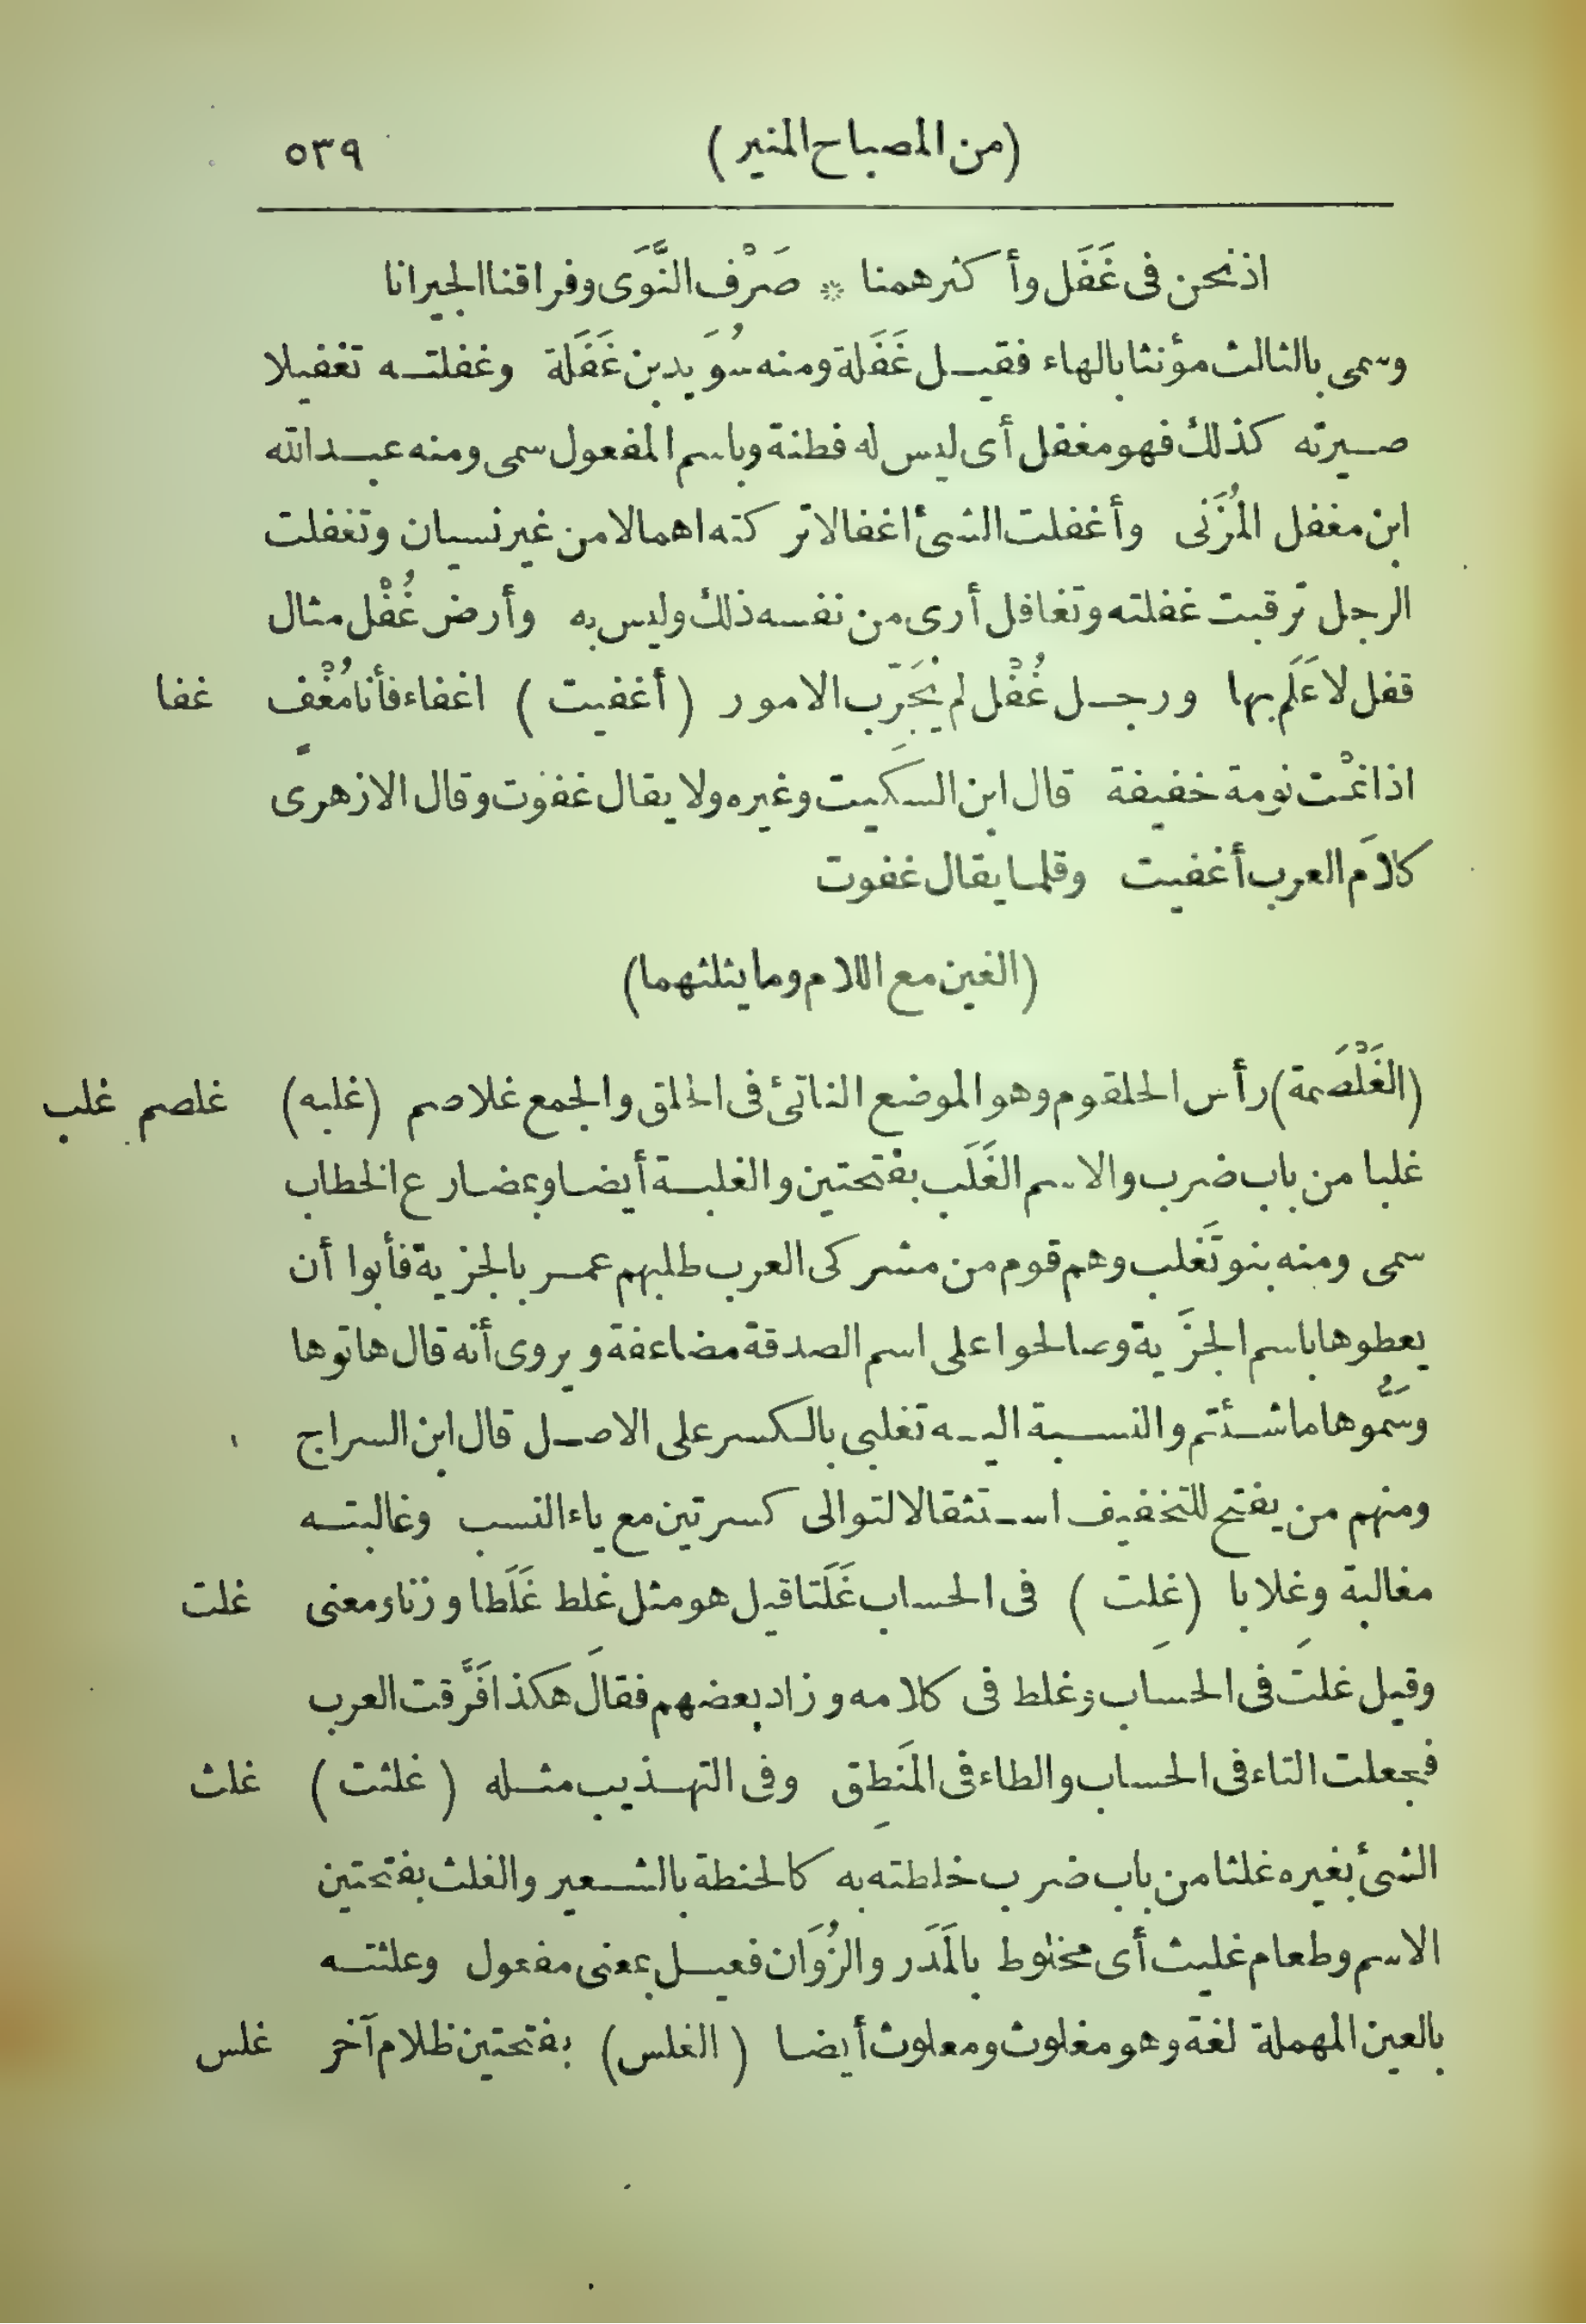 (من المصباح المنير) ٥٣٩
اذ نحن فى غَفَل وأكثر همنا * صَرْف النَّوَى وفراقنا الجيرانا
وسمى بالثالث مؤنثا بالهاء فقيل غَفَلة ومنه سُوَيد بن غَفَلة وغفلته تغفيلا
صيرته كذلك فهو مغفل أى ليس له فطنة وباسم المفعول سمى ومنه عبد الله
ابن مغفل المُزَنى وأغفلت الشئ اغفالا تركته اهمالا من غير نسيان وتغفلت
الرجل ترقبت غفلته وتغافل أرى من نفسه ذلك وليس به وأرض غُفْل مثال
قفل لا عَلَم بها ورجل غُفْل لم يُجَرِّب الامور (أغفيت) اغفاء فأنا مُغْفٍ غفا
اذا نمْت نومة خفيفة قال ابن السكيت وغيره ولا يقال غفوت وقال الازهرى
كلاَم العرب أغفيت وقلما يقال غفوت
(الغين مع اللام وما يثلثهما)
(الغَلْصَمة) رأس الحلقوم وهو الموضع الناتئ فى الحلق والجمع غلاصم (غلبه) غلصم غلب
غلبا من باب ضرب والاسم الغَلَب بفتحتين والغلبة أيضا وبمضارع الخطاب
سمى ومنه بنو تَغلب وهم قوم من مشركى العرب طلبهم عمر بالجزية فأبوا أن
يعطوها باسم الجزَية وصالحوا على اسم الصدقة مضاعفة ويروى أنه قال هاتوها
وسَمُّوها ما شئتم والنسبة اليه تغلبى بالكسر على الاصل قال ابن السراج
ومنهم من يفتح للتخفيف استثقالا لتوالى كسرتين مع ياء النسب وغالبته
مغالبة وغِلابا (غلِت) فى الحساب غَلَتا قيل هو مثل غلط غَلَطا وزنا ومعنى غلت
وقيل غلت فى الحساب وغلط فى كلامه وزاد بعضهم فقالَ هكذا فَرَّقت العرب
فجعلت التاء فى الحساب والطاء فى المَنطِق وفى التهذيب مثله (غلثت) غلث
الشئ بغيره غلثا من باب ضرب خلطته به كالحنطة بالشعير والغلث بفتحتين
الاسم وطعام غليث أى مخلوط بالمَدَر والزُوَان فعيل بمعنى مفعول وعلثته
بالعين المهملة لغة وهو مغلوث ومعلوث أيضا (الغلس) بفتحتين ظلام آخر غلس